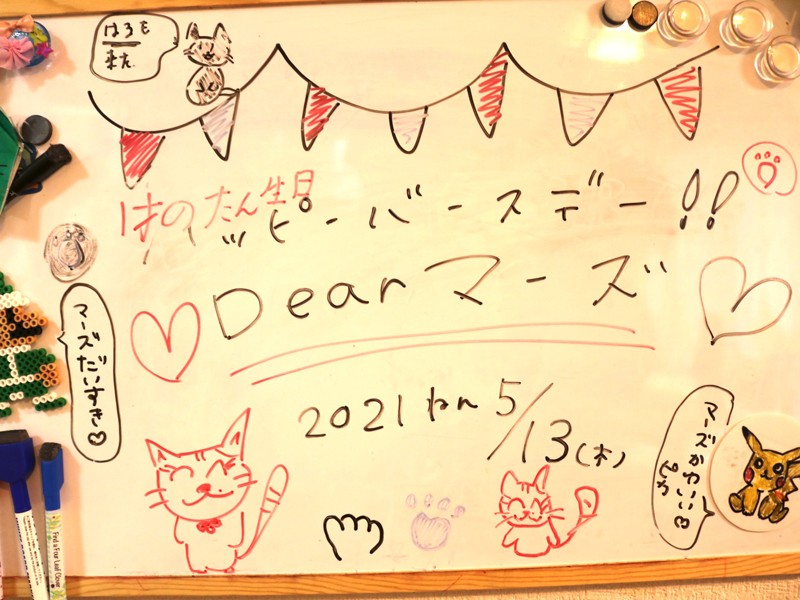 はろも
来た
はのたん生日
ハッピーバースデー!!
Dearマーズ
マーズだいすき♡
2021ねん5/13(木)
マーズかわいい♡
ピカ